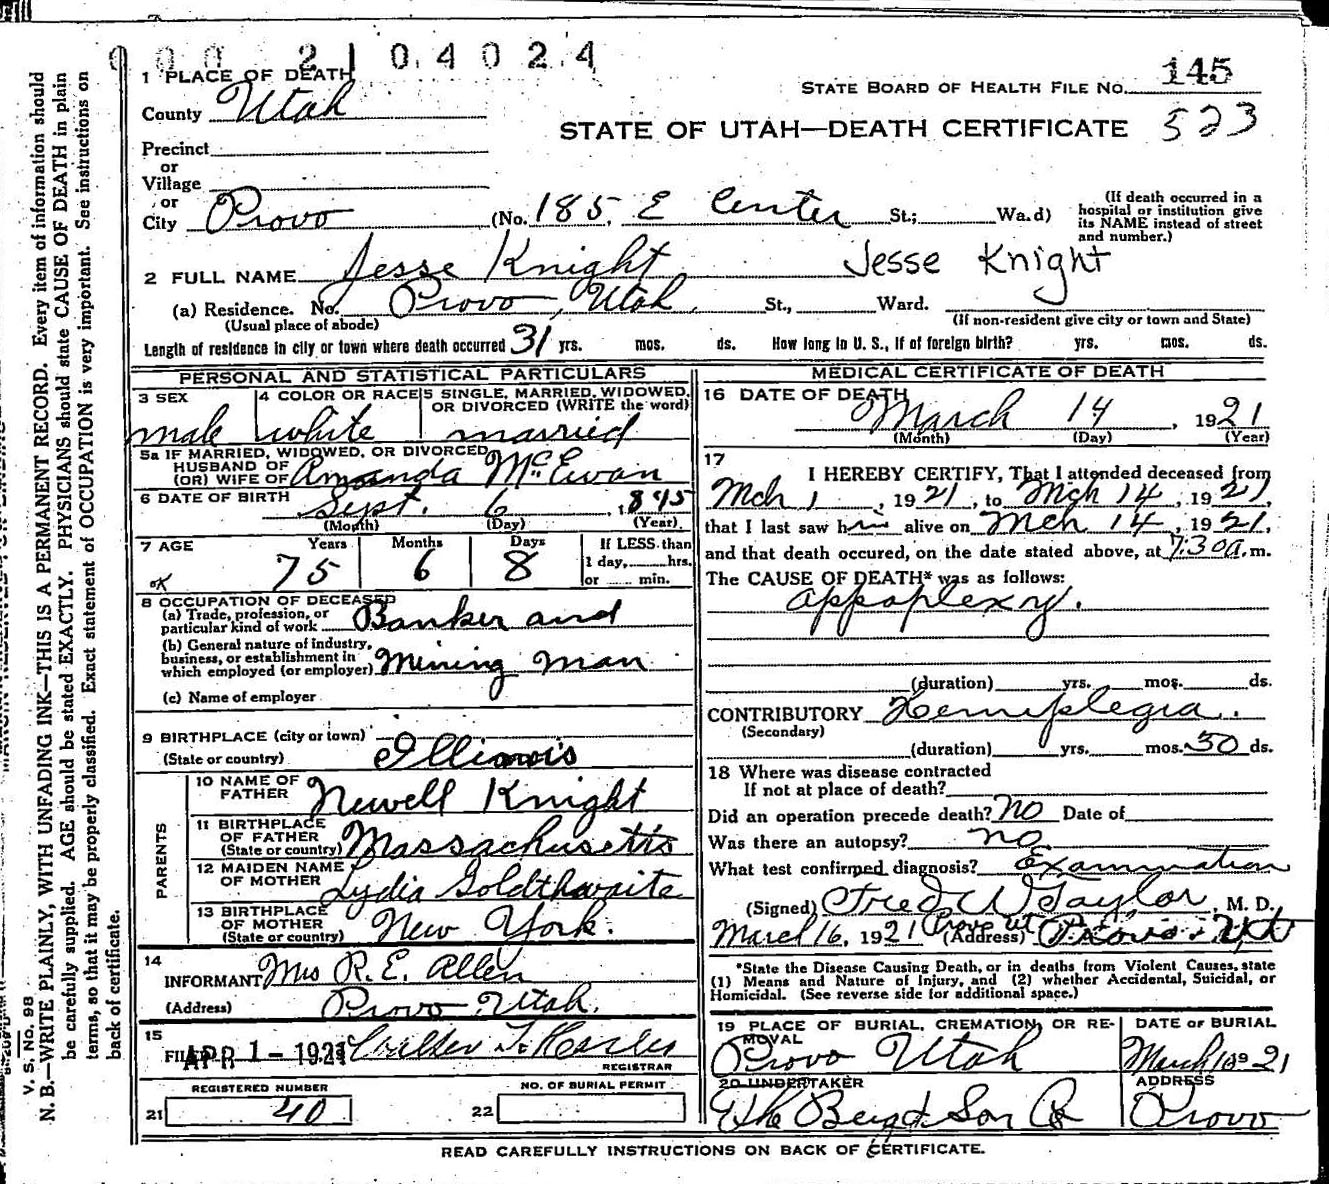 0 0 0 2 1 0 4 0 2 4
1 PLACE OF DEATH
County Utah
STATE BOARD OF HEALTH FILE NO. 145
STATE OF UTAH—DEATH CERTIFICATE 523
Precinct
or
Village
or
City Provo (No. 185, E Center St.; Wa.d)
(If death occurred in a
hospital or institution give
its NAME instead of street
and number.)
2 FULL NAME Jesse Knight Jesse Knight
(a) Residence. No. Provo, Utah, St., Ward.
(Usual place of abode) (If non-resident give city or town and State)
Length of residence in city or town where death occurred 31 yrs. mos. ds. How long in U. S., if of foreign birth? yrs. mos. ds.
PERSONAL AND STATISTICAL PARTICULARS
3 SEX 4 COLOR OR RACE 5 SINGLE, MARRIED, WIDOWED,
OR DIVORCED (WRITE the word)
male white married
5a IF MARRIED, WIDOWED, OR DIVORCED
HUSBAND OF
(OR) WIFE OF Amanda McEwan
6 DATE OF BIRTH Sept. 6, 1845
(Month) (Day) (Year)
7 AGE Years Months Days If LESS than
1 day, hrs.
or min.
OK 75 6 8
8 OCCUPATION OF DECEASED
(a) Trade, profession, or
particular kind of work Banker and
(b) General nature of industry,
business, or establishment in
which employed (or employer) Mining man
(c) Name of employer
9 BIRTHPLACE (city or town)
(State or country) Illinois
PARENTS
10 NAME OF
FATHER Newell Knight
11 BIRTHPLACE
OF FATHER
(State or country) Massachusetts
12 MAIDEN NAME
OF MOTHER Lydia Goldthwaite
13 BIRTHPLACE
OF MOTHER
(State or country) New York.
14
INFORMANT Mrs R. E. Allen
(Address) Provo Utah.
15
FILED APR 1 - 1921
REGISTRAR
REGISTERED NUMBER NO. OF BURIAL PERMIT
21 40 22
MEDICAL CERTIFICATE OF DEATH
16 DATE OF DEATH
March 14, 1921
(Month) (Day) (Year)
17
I HEREBY CERTIFY, That I attended deceased from
Mch 1, 1921, to Mch 14, 1921,
that I last saw him alive on Mch 14, 1921,
and that death occured, on the date stated above, at 7:30 a.m.
The CAUSE OF DEATH* was as follows:
appoplexy.
(duration) yrs. mos. ds.
CONTRIBUTORY Hemiplegia.
(Secondary)
(duration) yrs. mos. 30 ds.
18 Where was disease contracted
If not at place of death?
Did an operation precede death? No Date of
Was there an autopsy? no
What test confirmed diagnosis? Examination
(Signed) Fred W Taylor, M. D.
March 16, 1921 (Address) Provo Ut
*State the Disease Causing Death, or in deaths from Violent Causes, state
(1) Means and Nature of Injury, and (2) whether Accidental, Suicidal, or
Homicidal. (See reverse side for additional space.)
19 PLACE OF BURIAL, CREMATION, OR RE-
MOVAL DATE OF BURIAL
Provo Utah March 21
20 UNDERTAKER ADDRESS
The Berg & Son Co Provo
READ CAREFULLY INSTRUCTIONS ON BACK OF CERTIFICATE.
V. S. No. 98
N. B.—WRITE PLAINLY, WITH UNFADING INK—THIS IS A PERMANENT RECORD. Every item of information should
be carefully supplied. AGE should be stated EXACTLY. PHYSICIANS should state CAUSE OF DEATH in plain
terms, so that it may be properly classified. Exact statement of OCCUPATION is very important. See instructions on
back of certificate.